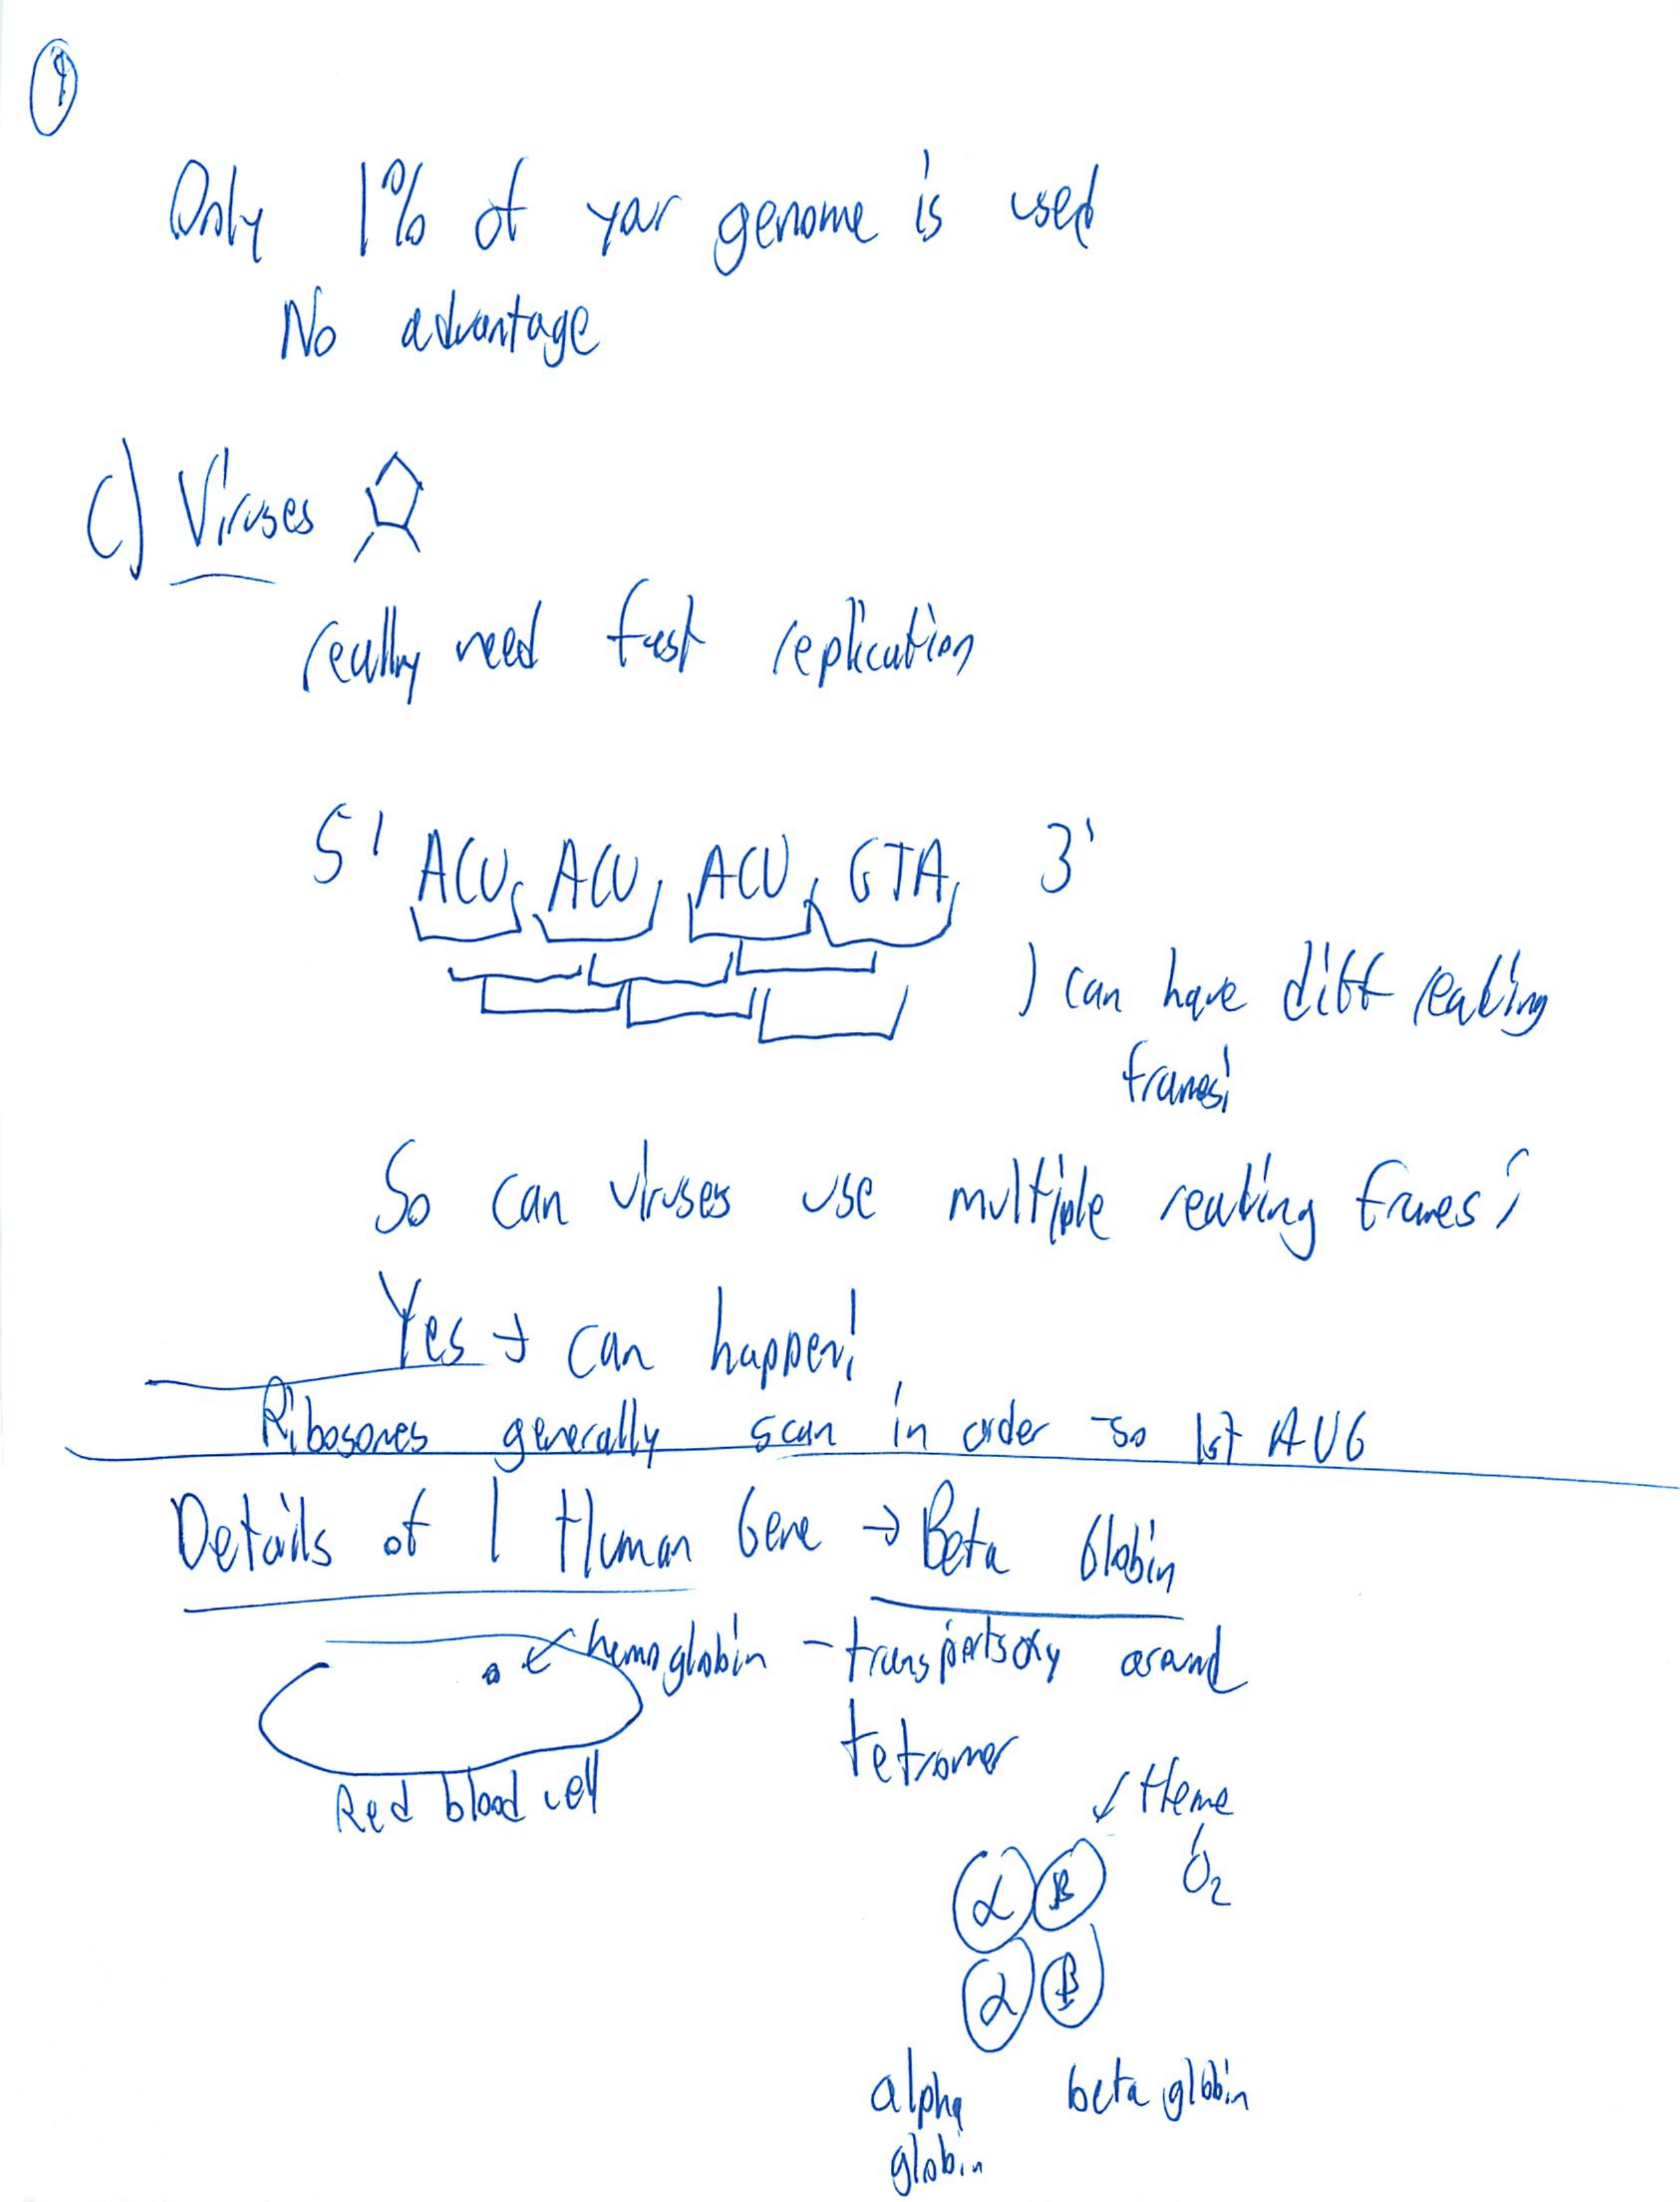 9
Only 1% of your genome is used
No advantage
C) Viruses
really need fast replication
5' ACU ACU ACU GTA 3'
can have diff reading
frames!
So can viruses use multiple reading frames?
Yes → can happen!
Ribosomes generally scan in order - so 1st AUG
Details of 1 Human Gene → Beta Globin
hemoglobin - transports oxy around
tetramer
Red blood cell
Heme
O2
α B
α B
alpha beta globin
globin